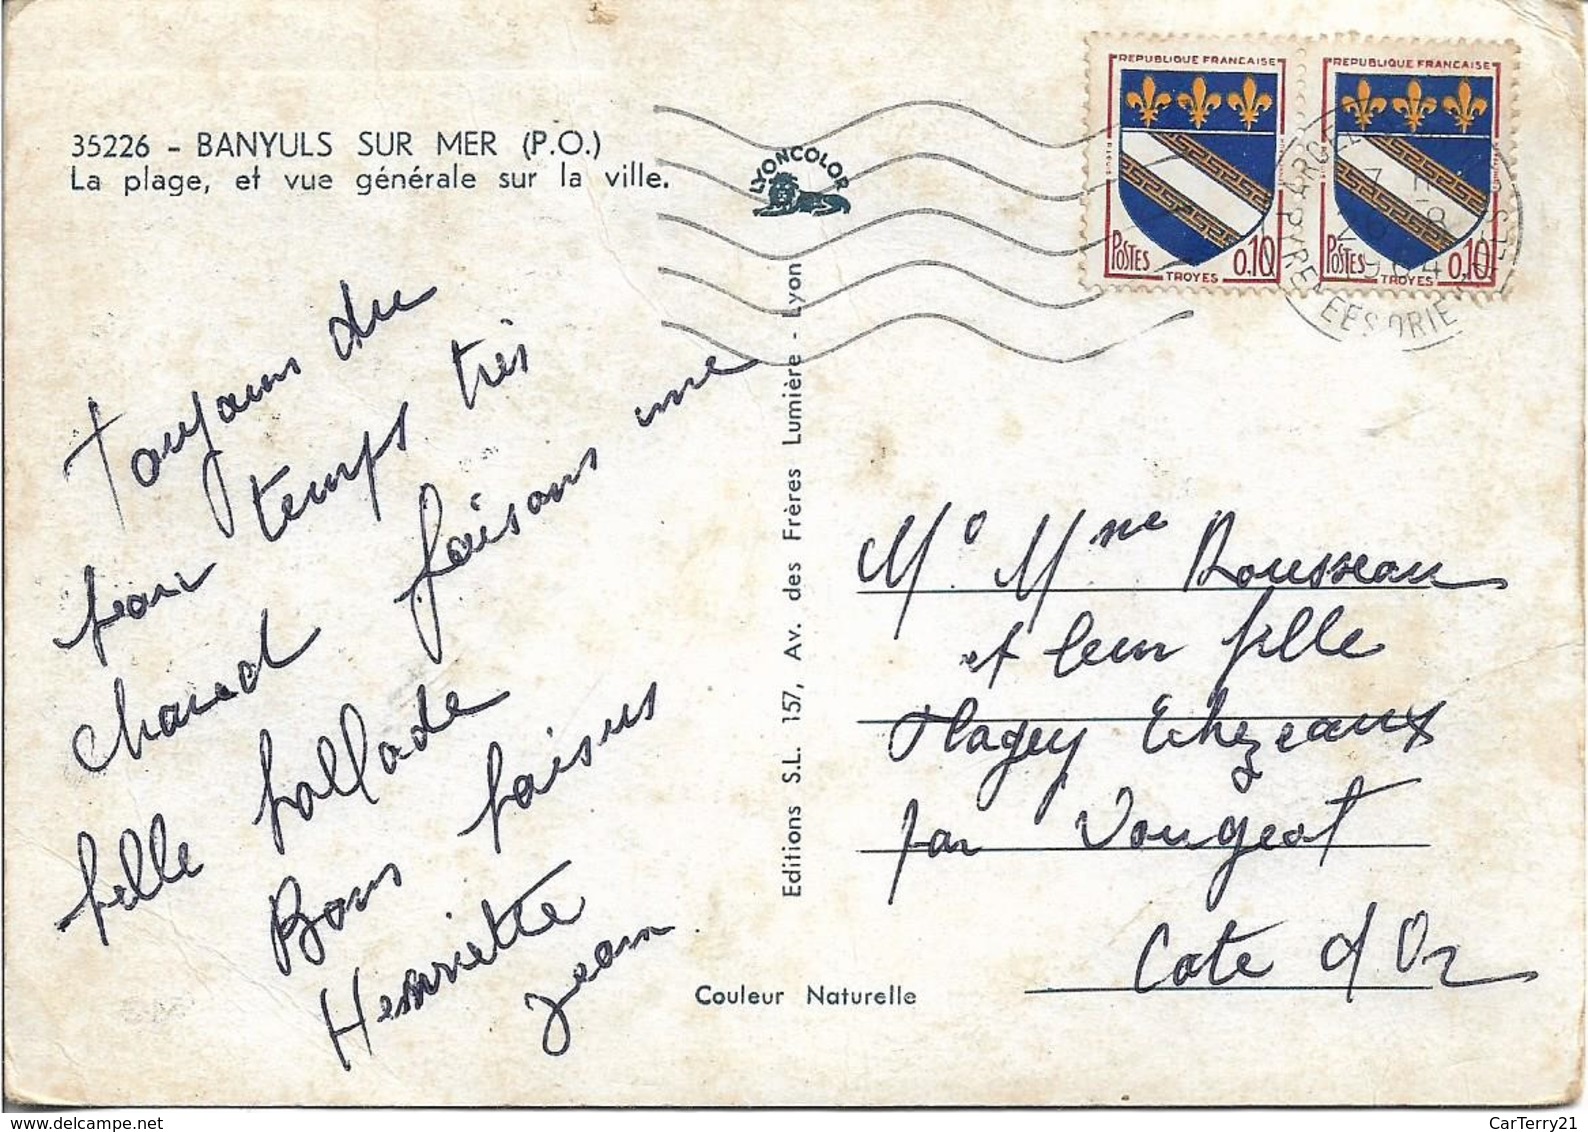 35226 - BANYULS SUR MER (P.O.)
La plage, et vue générale sur la ville.
LYONCOLOR
REPUBLIQUE FRANCAISE
POSTES 0.10
TROYES
REPUBLIQUE FRANCAISE
POSTES 0.10
TROYES
1964
Toujours du
beau temps très
chaud faisons une
belle ballade
Bons baisers
Henriette
Jean
Editions S.L. 157, Av. des Frères Lumière - Lyon
Mr Mme Rousseau
et leur fille
Flagey Echezeaux
par Vougeot
Cote d'Or
Couleur Naturelle
CarTerry21